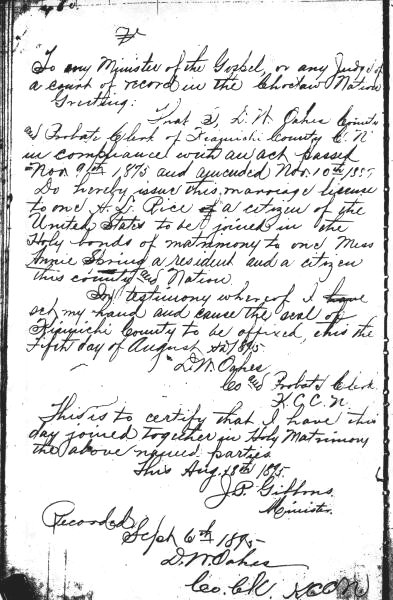 To any Minister of the Gospel, or any Judge of
a court of record in the Choctaw Nation
Greeting:
That I, D. W. Oakes County
and Probate Clerk of Kiamichi County C. N.
in compliance with an act passed
Nov. 9th, 1875 and amended Nov. 10th
Do hereby issue this marriage license
to one H. L. Rice a citizen of the
United States to be joined in the
Holy bonds of matrimony to one Miss
Annie Spring a resident and a citizen
this county and Nation
In testimony whereof I have
set my hand and cause the seal of
County to be affixed, this the
Fifth day of August 1895
D. W. Oakes
Co and Probate Clerk
K. C. C. N.
This is to certify that I have this
day joined together in Holy Matrimony
the above named parties
This Aug. 1895.
J. P. Gibbons
Minister
Recorded
Sept 6th 1895
D. W. Oakes
Co. Clk. K C C N